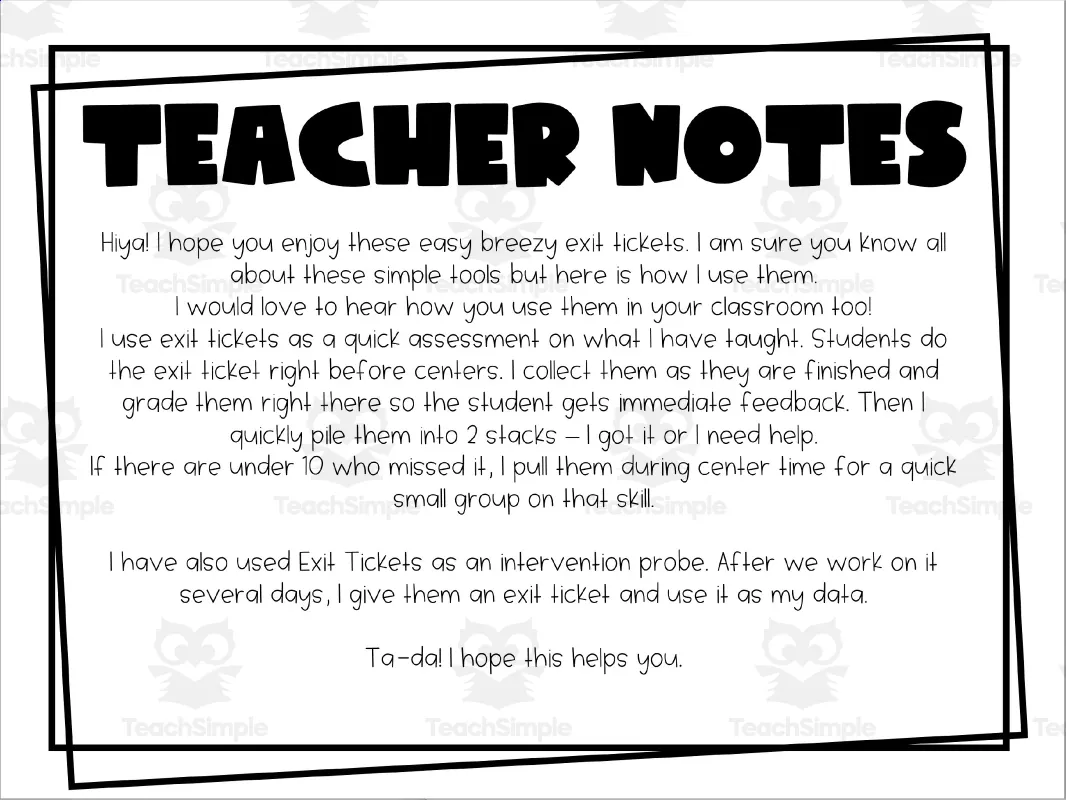 TEACHER NOTES
Hiya! I hope you enjoy these easy breezy exit tickets. I am sure you know all
about these simple tools but here is how I use them.
I would love to hear how you use them in your classroom too!
I use exit tickets as a quick assessment on what I have taught. Students do
the exit ticket right before centers. I collect them as they are finished and
grade them right there so the student gets immediate feedback. Then I
quickly pile them into 2 stacks – I got it or I need help.
If there are under 10 who missed it, I pull them during center time for a quick
small group on that skill.
I have also used Exit Tickets as an intervention probe. After we work on it
several days, I give them an exit ticket and use it as my data.
Ta-da! I hope this helps you.
TeachSimple